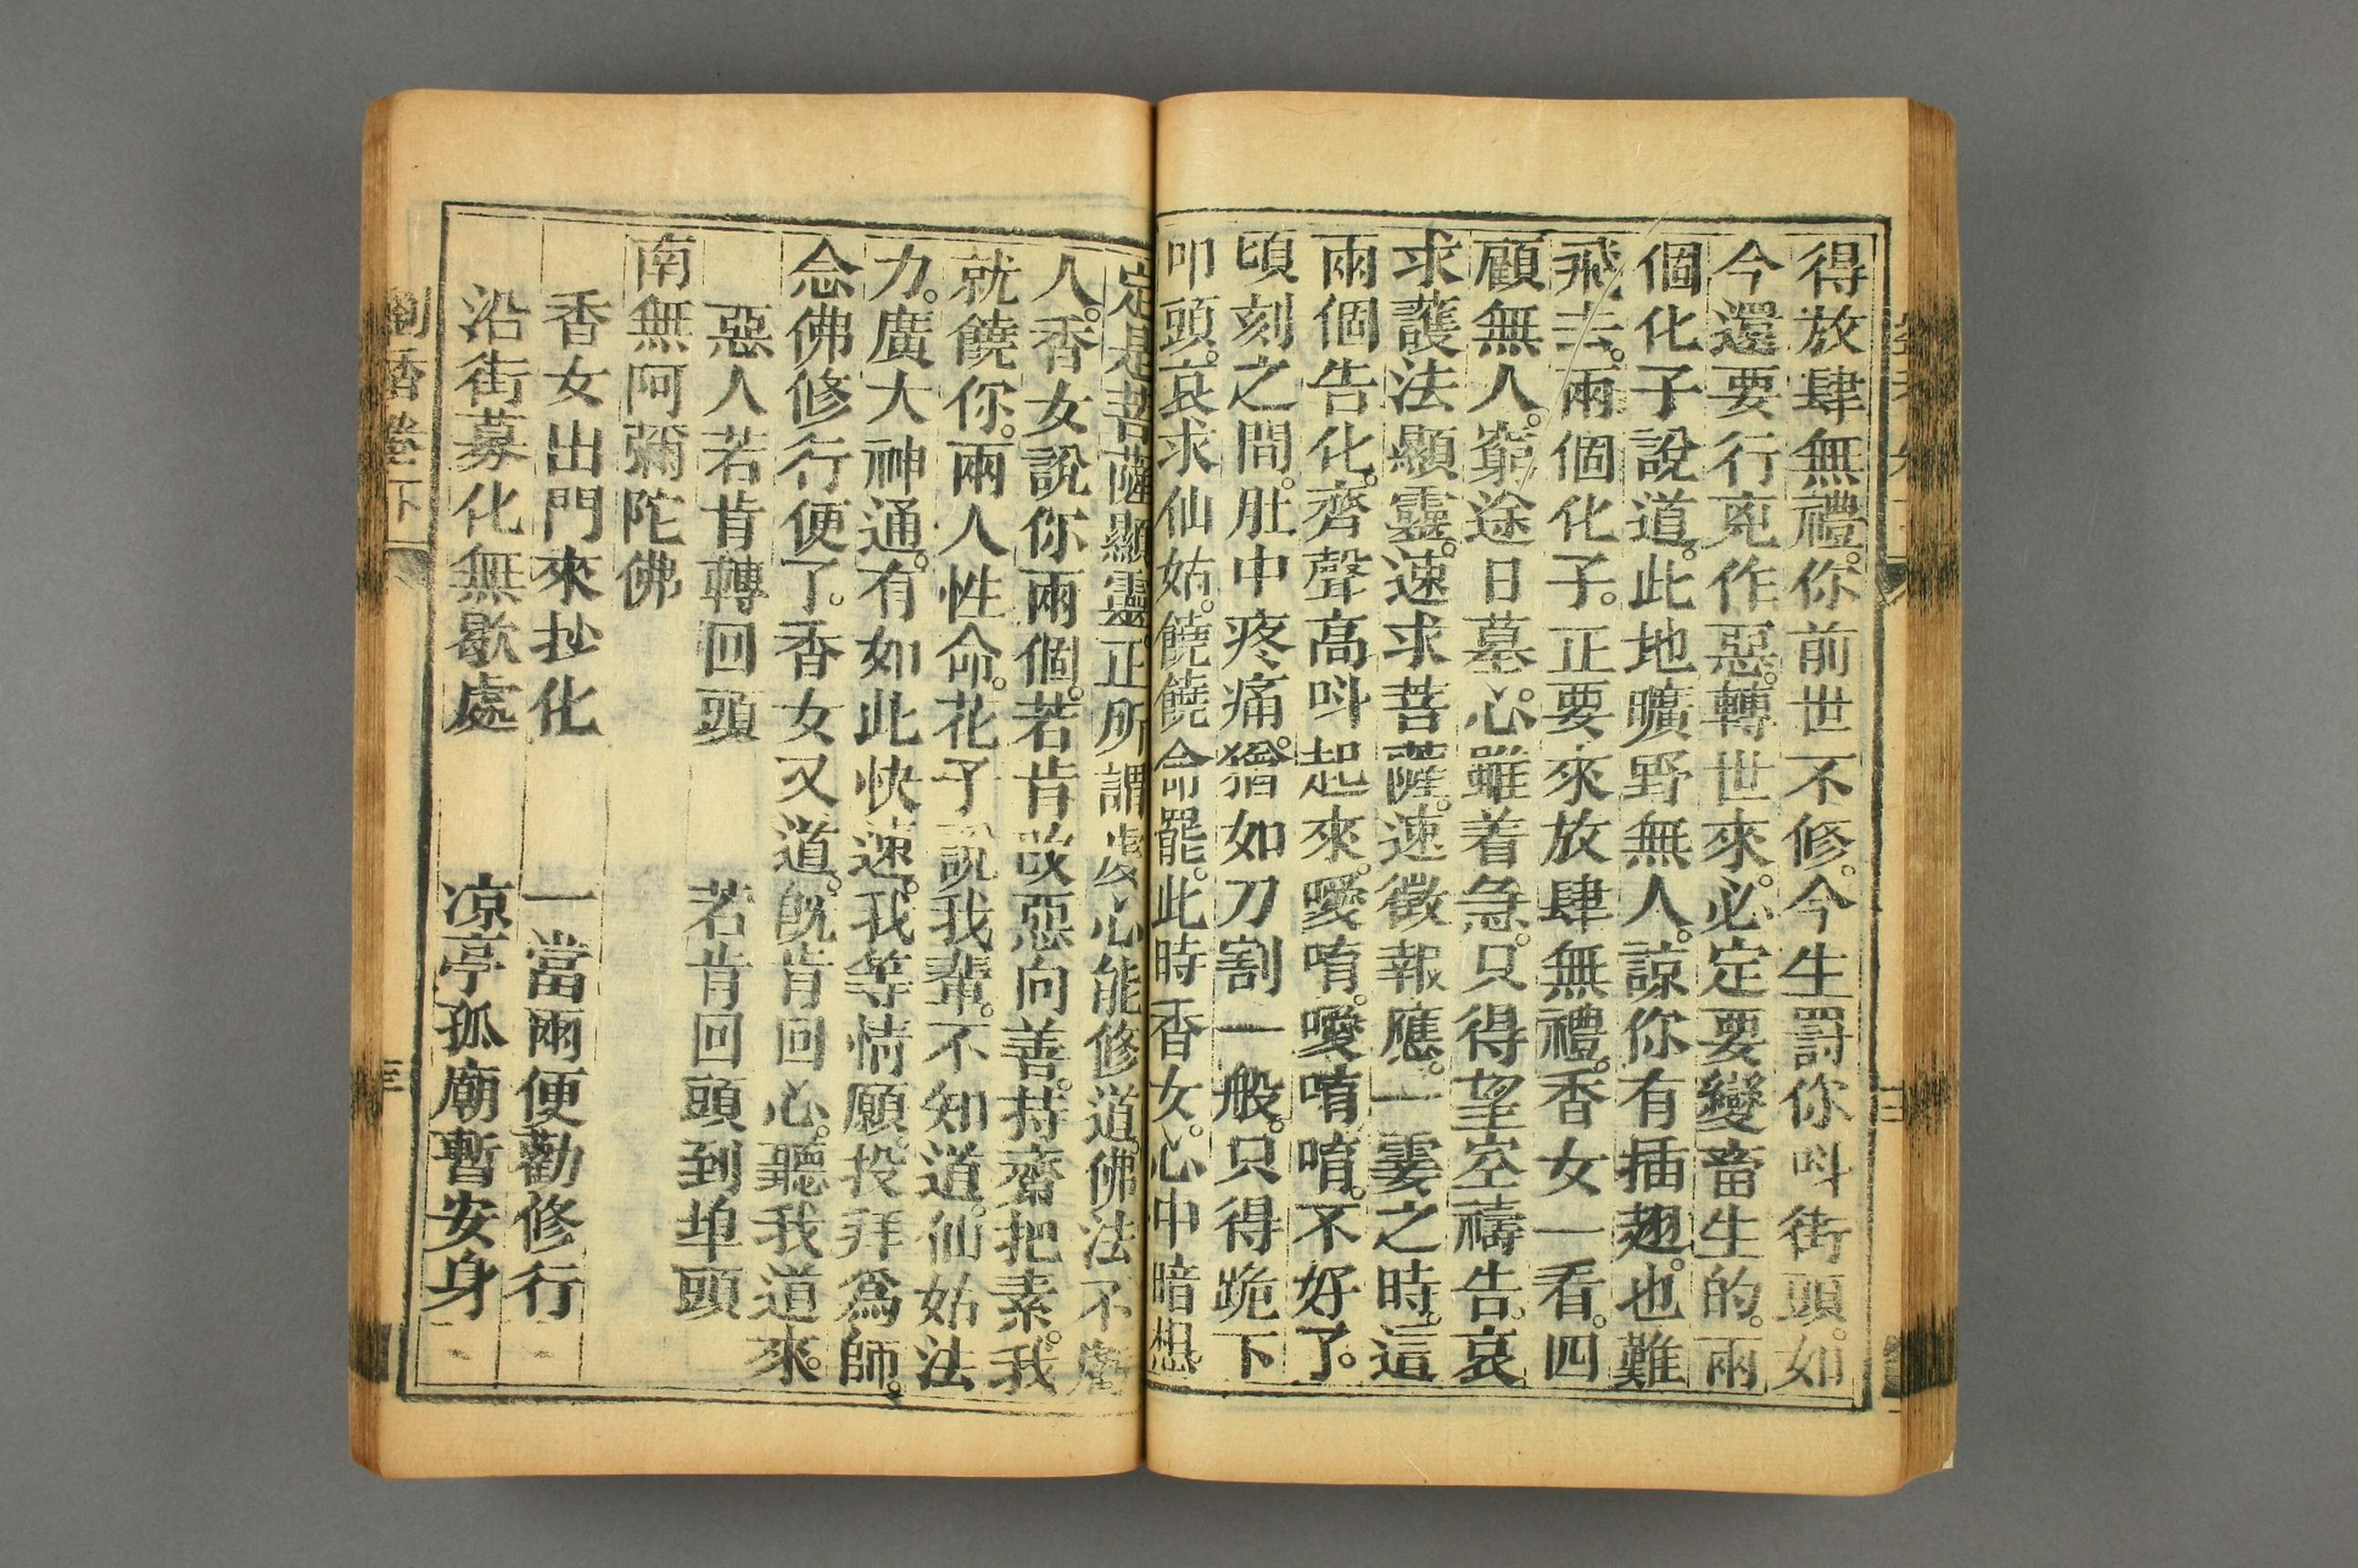 得放肆無禮。你前世不修。今生罸你呌街頭。如
今還要行兇作惡。轉世來。必定要變畜生的。兩
個化子說道。此地曠野無人。諒你有插翅。也難
飛去。兩個化子。正要來放肆無禮。香女一看。四
顧無人。窮途日墓。心雖着急。只得望空禱告。哀
求護法顯靈。速求菩薩。速徵報應。一霎之時。這
兩個告化。齊聲高呌起來。嗳唷。嗳唷唷。不好了。
頃刻之間。肚中疼痛。猶如刀割一般。只得跪下
叩頭。哀求仙姑。饒饒命罷。此時香女。心中暗想。
定是菩薩顯靈。正所謂虔心能修道。佛法不
人。香女說你兩個。若肯改惡向善。持齋把素。我
就饒你。兩人性命。花子說我輩。不知道。仙姑法
力。廣大神通。有如此快速。我等情願。投拜爲師。
念佛修行便了。香女又道。旣肯回心。聽我道來。
惡人若肯轉回頭　若肯回頭到埠頭
南無阿彌陀佛
香女出門來抄化　一當兩便勸修行
沿街募化無歇處　凉亭孤廟暫安身
劉香卷下